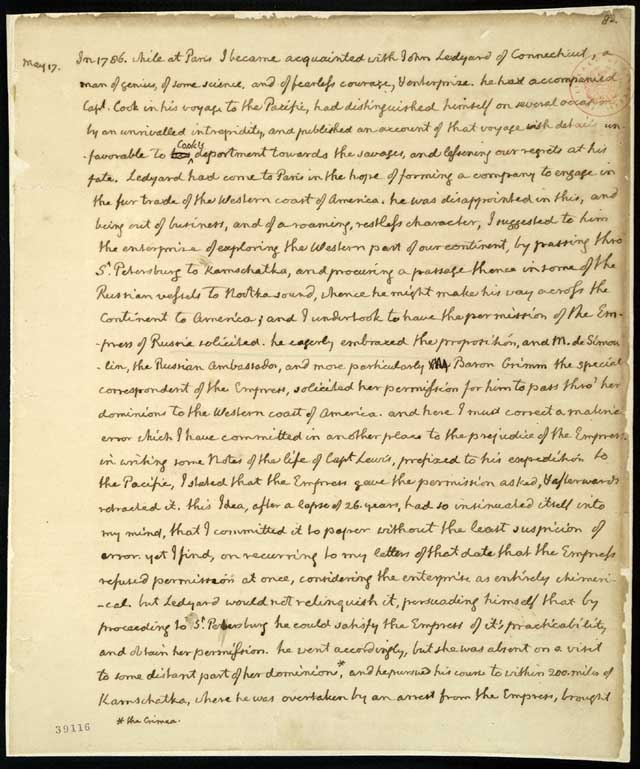 82.
May 17. In 1786. while at Paris I became acquainted with John Ledyard of Connecticut, a
man of genius, of some science, and of fearless courage, & enterprize. he had accompanied
Capt. Cook in his voyage to the Pacific, had distinguished himself on several occasions
by an unrivalled intrepidity, and published an account of that voyage with details un-
-favorable to Cook's deportment towards the savages, and lessening our regrets at his
fate. Ledyard had come to Paris in the hope of forming a company to engage in
the fur trade of the Western coast of America. he was disappointed in this, and
being out of business, and of a roaming, restless character, I suggested to him
the enterprize of exploring the Western part of our continent, by passing thro
St. Petersburg to Kamschatka, and procuring a passage thence in some of the
Russian vessels to Nootka sound, whence he might make his way across the
Continent to America; and I undertook to have the permission of the Em-
-press of Russia solicited. he eagerly embraced the proposition, and M. de Simou-
-lin, the Russian Ambassador, and more particularly Baron Grimm the special
correspondent of the Empress, solicited her permission for him to pass thro' her
dominions to the Western coast of America. and here I must correct a material
error which I have committed in another place to the prejudice of the Empress.
in writing some Notes of the life of Capt Lewis, prefixed to his expedition to
the Pacific, I stated that the Empress gave the permission asked, & afterwards
retracted it. this Idea, after a lapse of 26 years, had so insinuated itself into
my mind, that I committed it to paper without the least suspicion of
error. yet I find, on recurring to my letters of that date that the Empress
refused permission at once, considering the enterprise as entirely chimeri-
-cal. but Ledyard would not relinquish it, persuading himself that by
proceeding to St. Petersburg he could satisfy the Empress of it's practicability
and obtain her permission. he went accordingly, but she was absent on a visit
to some distant part of her dominions,* and he pursued his course to within 200. miles of
Kamschatka, where he was overtaken by an arrest from the Empress, brought
* the Crimea.
39116